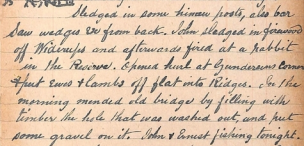 Sledged in some himau posts, also bar
saw wedges &c from back. John sledged in firewood
off Widneeps and afterwards fired at a rabbit
in the Reserve. Opened hurl at Gundersens Corner
& put Ewes & lambs off flat into Ridges. In the
morning mended old bridge by filling with
timber the hole that was washed out, and put
some gravel on it. John & Ernest fishing tonight.